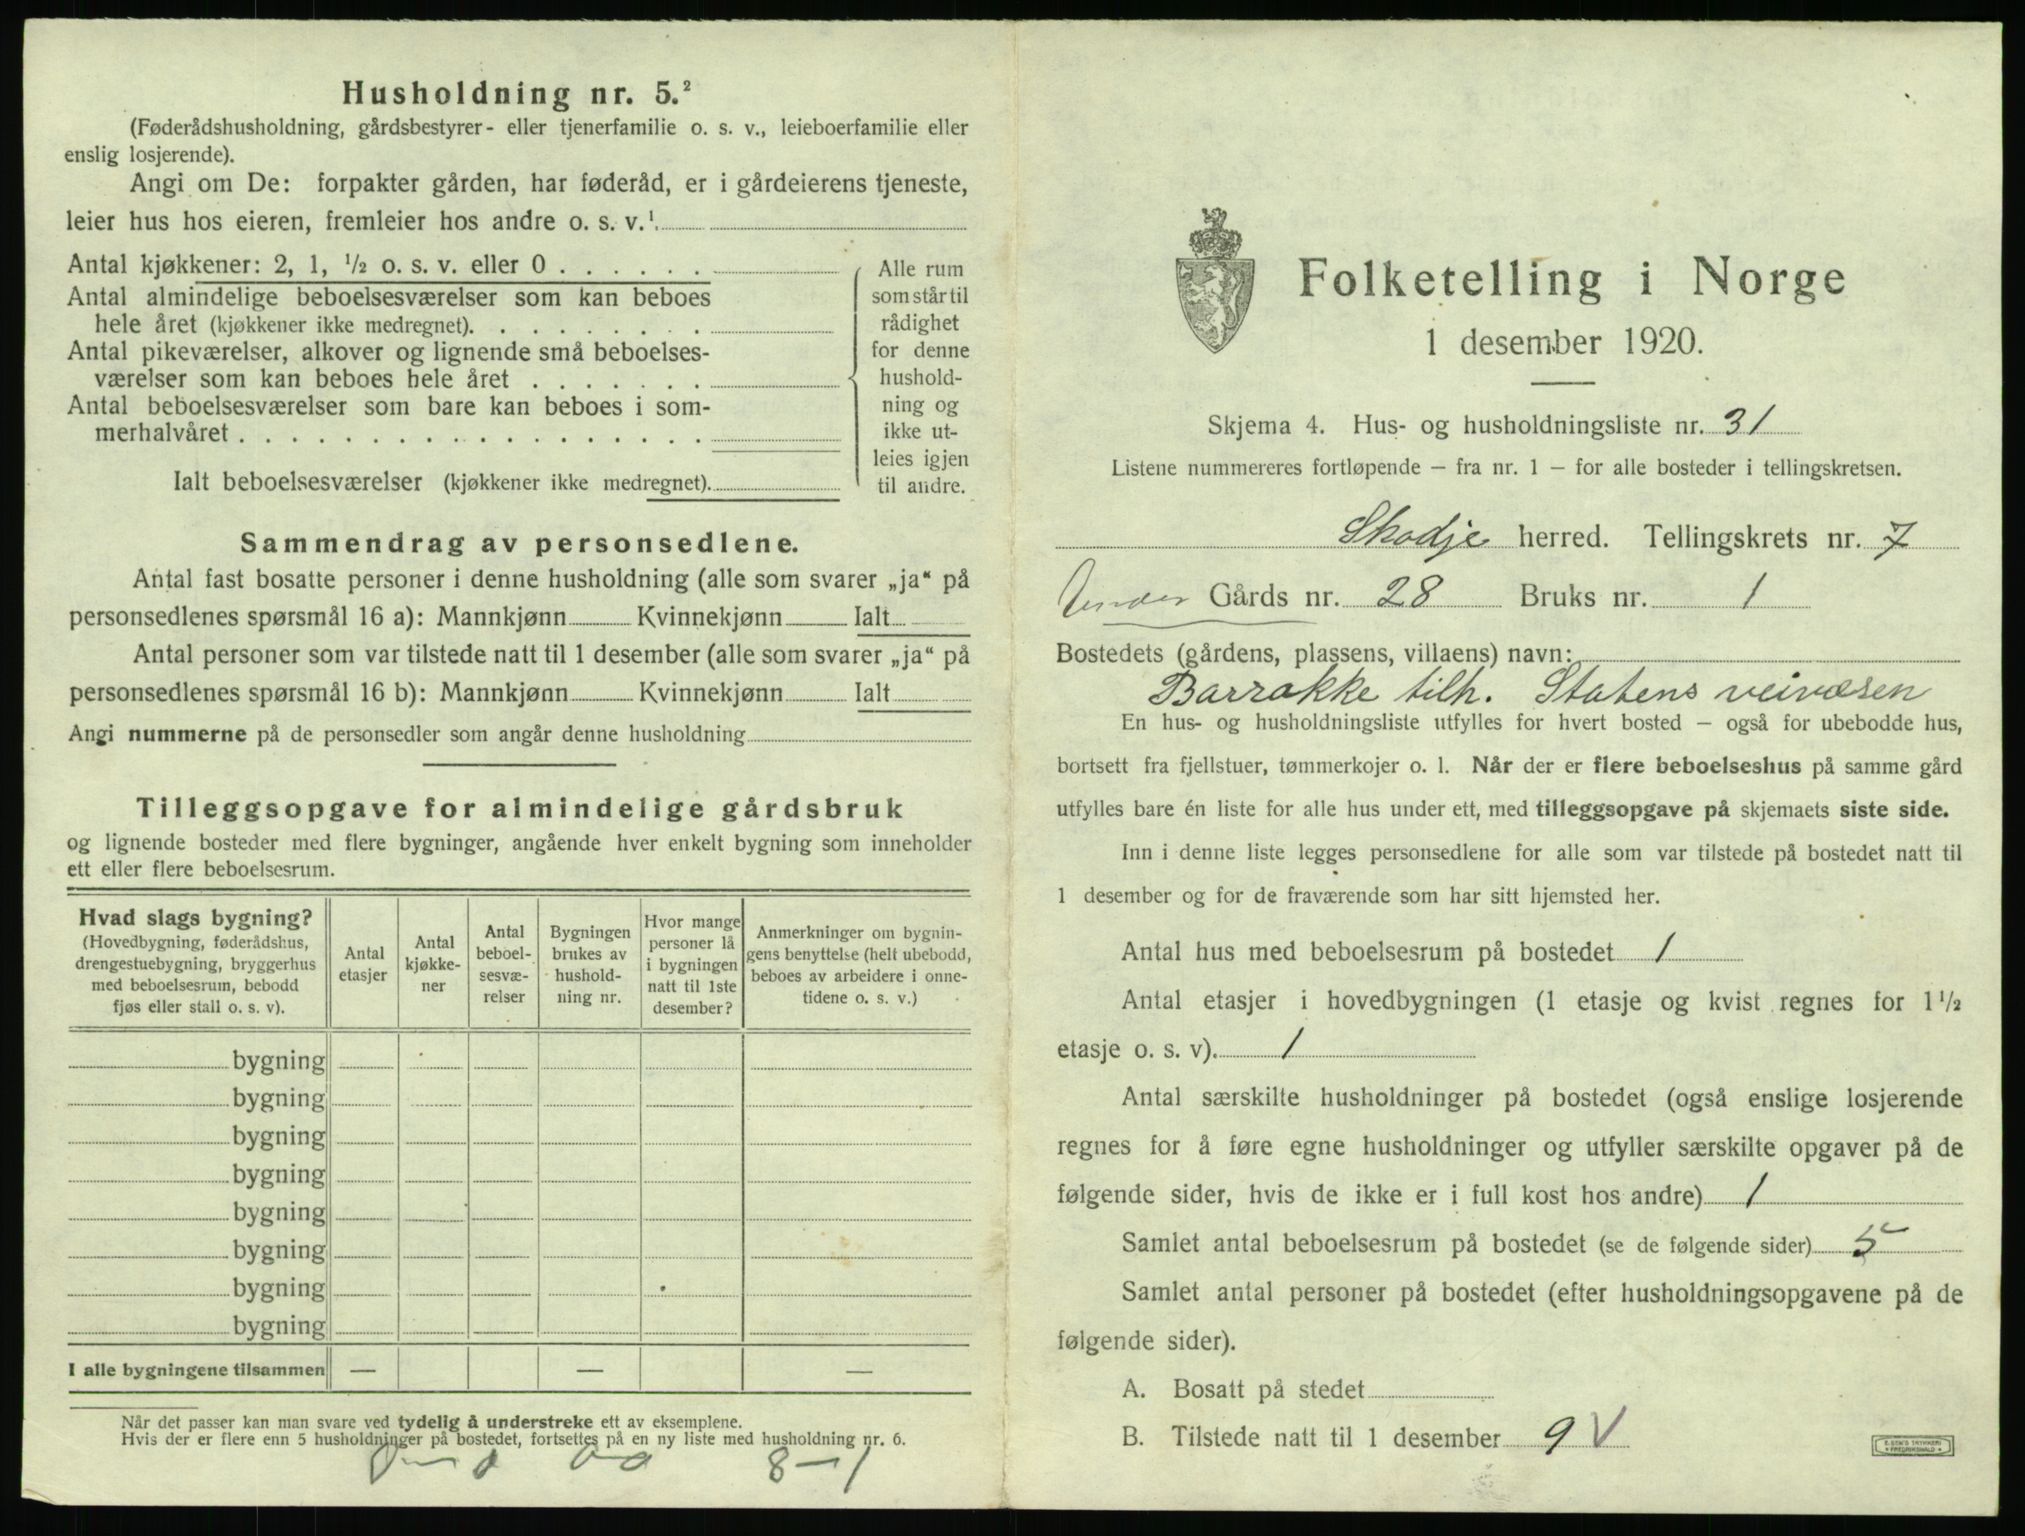 Husholdning nr. 5.²
(Føderådshusholdning, gårdsbestyrer- eller tjenerfamilie o. s. v., leieboerfamilie eller
enslig losjerende).
Angi om De: forpakter gården, har føderåd, er i gårdeierens tjeneste,
leier hus hos eieren, fremleier hos andre o. s. v.¹
Antal kjøkkener: 2, 1, ½ o. s. v. eller 0 . . . . . .
Antal almindelige beboelsesværelser som kan beboes
hele året (kjøkkener ikke medregnet). . . . . . . . .
Antal pikeværelser, alkover og lignende små beboelses-
værelser som kan beboes hele året . . . . . . .
Antal beboelsesværelser som bare kan beboes i som-
merhalvåret . . . . . . . . . . . . . . . . . .
Ialt beboelsesværelser (kjøkkener ikke medregnet).
Alle rum
som står til
rådighet
for denne
hushold-
ning og
ikke ut-
leies igjen
til andre.
Sammendrag av personsedlene.
Antal fast bosatte personer i denne husholdning (alle som svarer „ja“ på
personsedlenes spørsmål 16 a): Mannkjønn Kvinnekjønn Ialt
Antal personer som var tilstede natt til 1 desember (alle som svarer „ja“ på
personsedlenes spørsmål 16 b): Mannkjønn Kvinnekjønn Ialt
Angi nummerne på de personsedler som angår denne husholdning
Tilleggsopgave for almindelige gårdsbruk
og lignende bosteder med flere bygninger, angående hver enkelt bygning som inneholder
ett eller flere beboelsesrum.
Hvad slags bygning?
(Hovedbygning, føderådshus,
drengestuebygning, bryggerhus
med beboelsesrum, bebodd
fjøs eller stall o. s. v).
Antal
etasjer
Antal
kjøkke-
ner
Antal
beboel-
sesvæ-
relser
Bygningen
brukes av
hushold-
ning nr.
Hvor mange
personer lå
i bygningen
natt til 1ste
desember?
Anmerkninger om bygnin-
gens benyttelse (helt ubebodd,
beboes av arbeidere i onne-
tidene o. s. v.)
bygning
bygning
bygning
bygning
bygning
bygning
bygning
bygning
I alle bygningene tilsammen — — —
Når det passer kan man svare ved tydelig å understreke ett av eksemplene.
Hvis der er flere enn 5 husholdninger på bostedet, fortsettes på en ny liste med husholdning nr. 6.
8 — 1
Folketelling i Norge
1 desember 1920.
Skjema 4. Hus- og husholdningsliste nr. 31
Listene nummereres fortløpende – fra nr. 1 – for alle bosteder i tellingskretsen.
Skodje herred. Tellingskrets nr. 7
Under Gårds nr. 28 Bruks nr. 1
Bostedets (gårdens, plassens, villaens) navn:
Barrakke tilh. Statens veivæsen
En hus- og husholdningsliste utfylles for hvert bosted – også for ubebodde hus,
bortsett fra fjellstuer, tømmerkojer o. l. Når der er flere beboelseshus på samme gård
utfylles bare én liste for alle hus under ett, med tilleggsopgave på skjemaets siste side.
Inn i denne liste legges personsedlene for alle som var tilstede på bostedet natt til
1 desember og for de fraværende som har sitt hjemsted her.
Antal hus med beboelsesrum på bostedet 1
Antal etasjer i hovedbygningen (1 etasje og kvist regnes for 1½
etasje o. s. v). 1
Antal særskilte husholdninger på bostedet (også enslige losjerende
regnes for å føre egne husholdninger og utfyller særskilte opgaver på de
følgende sider, hvis de ikke er i full kost hos andre) 1
Samlet antal beboelsesrum på bostedet (se de følgende sider) 5
Samlet antal personer på bostedet (efter husholdningsopgavene på de
følgende sider).
A. Bosatt på stedet
B. Tilstede natt til 1 desember 9 V